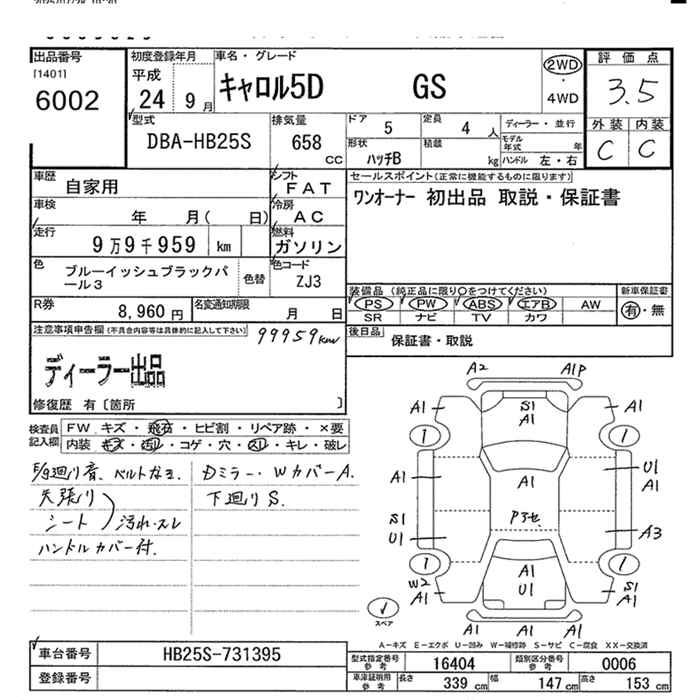 出品番号
[1401]
6002
初度登録年月
平成
24 9 月
車名・グレード
キャロル5D GS
2WD
・
4WD
評価点
3.5
外装 内装
C C
型式
DBA-HB25S
排気量
658
CC
ドア
5
定員
4 人
ディーラー・並行
モデル年式 年
形状
ハッチB
積載
kg
ハンドル 左・右
車歴
自家用
シフト
FAT
車検
年 月( 日)
冷房
AC
走行
9万9千959 km
燃料
ガソリン
色
ブルーイッシュブラックパール3
色替
色コード
ZJ3
セールスポイント(正常に機能するものに限ります)
ワンオーナー 初出品 取説・保証書
装備品 (純正品に限り○をつけてください)
新車保証書
PS PW ABS エアB AW
有・無
SR ナビ TV カワ
R券
8,960 円
名変通知期限
月 日
後日品
保証書・取説
注意事項申告欄(不具合内容等は具体的に記入して下さい)
99959km
ディーラー出品
修復歴 有〔箇所 〕
検査員記入欄
FW キズ・飛石・ヒビ割・リペア跡・×要
内装 キズ・汚れ・コゲ・穴・スレ・キレ・破レ
E/g廻り音、ベルトなき、
天張り
シート
汚れ・スレ
ハンドルカバー付.
Dミラー・WカバーA.
下廻りS.
A2 A1P
A1 S1 A1 A1
1 1
A1 A1 U1 A1
S1 U1 Pアセ A3
1 1
W2 A1 A1 U1 S1 A1
A1 A1
スペア
A-キズ E-エクボ U-凹み W-補修跡 S-サビ C-腐食 XX-交換済
車台番号
HB25S-731395
登録番号
型式指定番号
参考
16404
類別区分番号
参考
0006
車庫証明用
参考
長さ 339 cm
幅 147 cm
高さ 153 cm